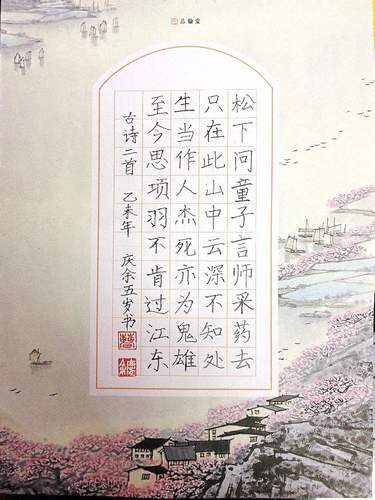 品翰堂
松下问童子言师采药去
只在此山中云深不知处
生当作人杰死亦为鬼雄
至今思项羽不肯过江东
古诗二首 乙未年 庆余五岁书